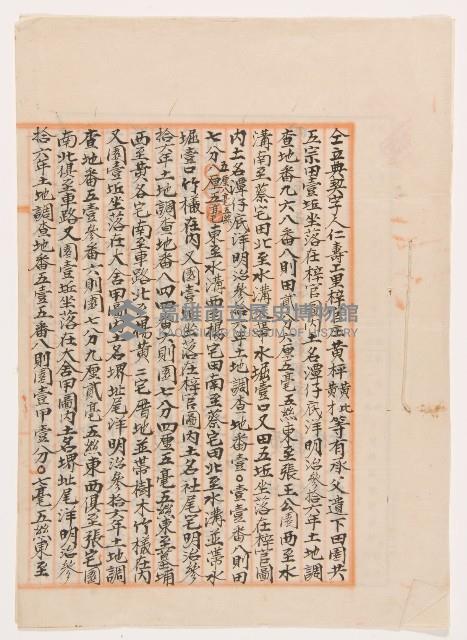 仝立典契字人仁壽上里梓官庄黃枰黃比黃才等有承父遺下田園共
五宗田壹坵坐落在梓官圖內土名潭仔底洋明治參拾六年土地調
查地番九六八番八則田貳分六厘五毫五絲東至張王公園西至水
溝南至蔡宅田北至水溝並帶水堀壹口又田五坵坐落在梓官圖
內土名潭仔底洋明治參拾六年土地調查地番壹〇壹壹番八則田
七分八厘五毫東至水溝西至楊宅田南至蔡宅田北至水溝並帶水
堀壹口竹欉在內又園壹坵坐落在梓官圖內土名社尾宅明治參
拾六年土地調查地番八四四番六則園七分四厘五毫五絲東至塗埔
西至黃各宅南至車路北至楊黃二宅厝地並帶樹木竹欉在內
又園壹坵坐落在大舍甲圖內土名堺址尾洋明治參拾六年土地調
查地番五壹參番六則園八分九厘貳毫五絲東西俱至張宅園
南北俱至車路又園壹坵坐落在大舍甲圖內土名堺址尾洋明治參
拾六年土地調查地番五壹五番八則園壹甲壹分〇七毫五絲東至
高雄市立歷史博物館
KAOHSIUNG MUSEUM OF HISTORY